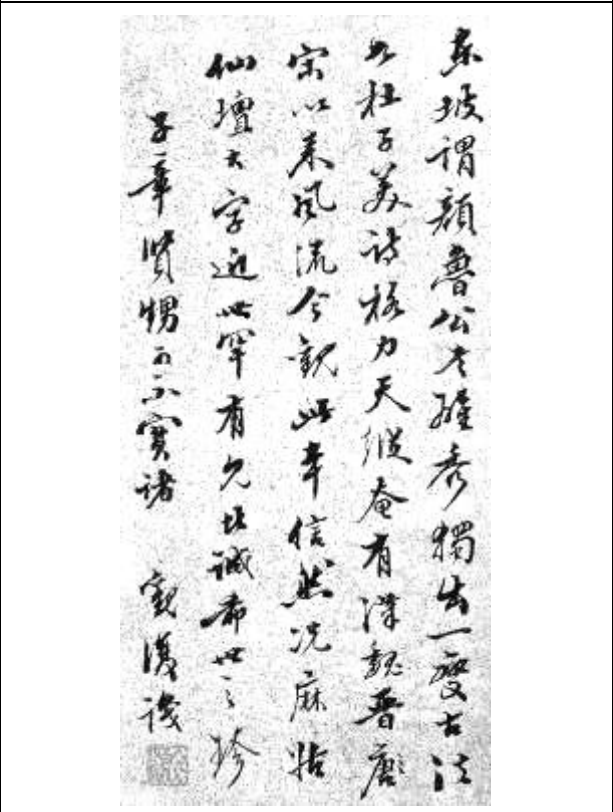 東坡謂顏魯公書雄秀獨出一變古法
如杜子美詩格力天縱奄有漢魏晉唐
宋以來風流今觀此本信然況麻姑
仙壇大字近世罕有誠希世之珍
子章賢甥可不寶諸 觀復識